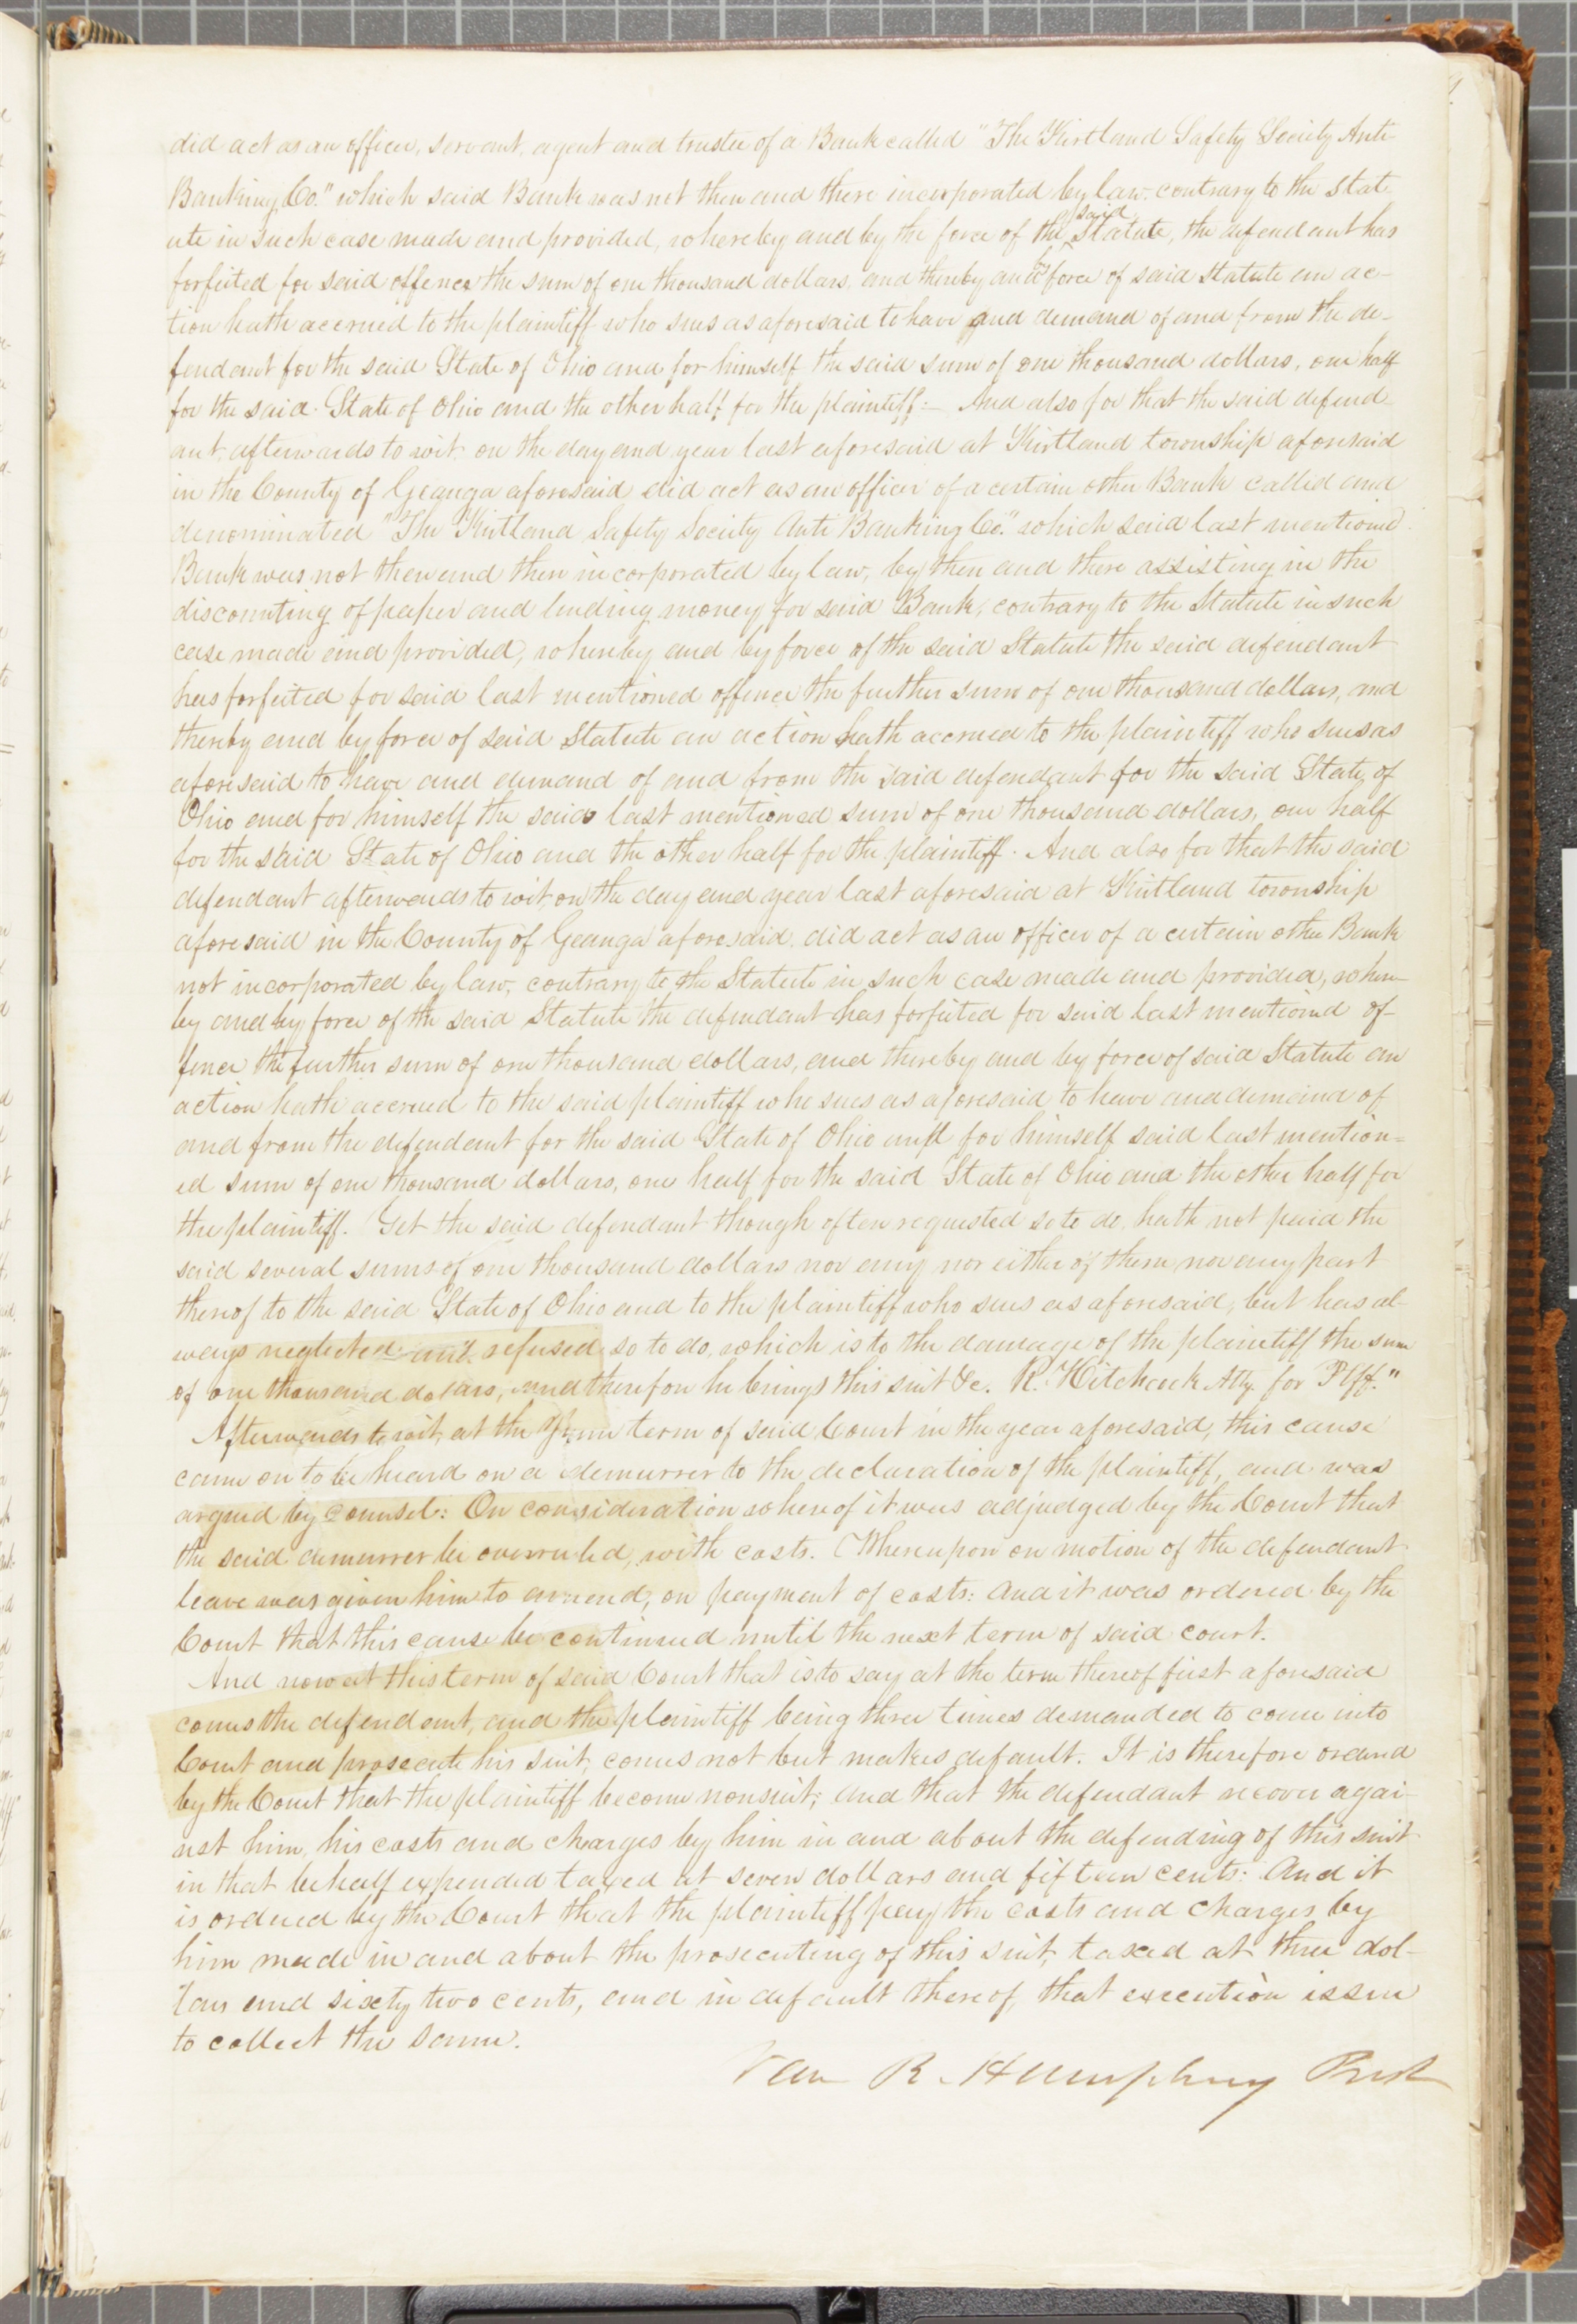 did act as an officer, servant, agent and trustee of a Bank called "The Kirtland Safety Society Anti-
Banking Co." which said Bank was not then and there incorporated by law, contrary to the Stat-
ute in such case made and provided, whereby and by the force of the said Statute, the defendant has
forfeited for said offence the sum of one thousand dollars, and thereby and by force of said Statute an ac-
tion hath accrued to the plaintiff who sues as aforesaid to have and demand of and from the de-
fendant for the said State of Ohio and for himself the said sum of one thousand dollars, one half
for the said State of Ohio and the other half for the plaintiff:– And also for that the said defend-
ant, afterwards to wit on the day and year last aforesaid at Kirtland township aforesaid
in the County of Geauga aforesaid did act as an officer of a certain other Bank called and
denominated "The Kirtland Safety Society Anti Banking Co." which said last mentioned
Bank was not then and there incorporated by law, by then and there assisting in the
discounting of paper and lending money for said Bank, contrary to the Statute in such
case made and provided, whereby and by force of the said Statute the said defendant
has forfeited for said last mentioned offence the further sum of one thousand dollars, and
thereby and by force of said Statute an action hath accrued to the plaintiff who sues as
aforesaid to have and demand of and from the said defendant for the said State of
Ohio and for himself the said last mentioned sum of one thousand dollars, one half
for the said State of Ohio and the other half for the plaintiff. And also for that the said
defendant afterwards to wit, on the day and year last aforesaid at Kirtland township
aforesaid in the County of Geauga aforesaid did act as an officer of a certain other Bank
not incorporated by law, contrary to the Statute in such case made and provided, where-
by and by force of the said Statute the defendant has forfeited for said last mentioned of-
fence the further sum of one thousand dollars, and thereby and by force of said Statute an
action hath accrued to the said plaintiff who sues as aforesaid to have and demand of
and from the defendant for the said State of Ohio and for himself said last mention=
ed sum of one thousand dollars, one half for the said State of Ohio and the other half for
the plaintiff. Yet the said defendant though often requested so to do, hath not paid the
said several sums of one thousand dollars nor any nor either of them nor any part
thereof to the said State of Ohio and to the plaintiff who sues as aforesaid, but has al-
ways neglected and refused so to do, which is to the damage of the plaintiff the sum
of one thousand dollars, and therefore he brings this suit &c. R. Hitchcock Atty. for Plff."
Afterwards to wit, at the June term of said Court in the year aforesaid, this cause
came on to be heard on a demurrer to the declaration of the plaintiff, and was
argued by counsel: On consideration whereof it was adjudged by the Court that
the said demurrer be overruled, with costs. Whereupon on motion of the defendant
leave was given him to amend, on payment of costs: and it was ordered by the
Court that this cause be continued until the next term of said court.
And now at this term of said Court that is to say at the term thereof first aforesaid
comes the defendant, and the plaintiff being three times demanded to come into
Court and prosecute his suit, comes not but makes default. It is therefore ordered
by the Court that the plaintiff become nonsuit; and that the defendant recover agai-
nst him, his costs and charges by him in and about the defending of this suit
in that behalf expended taxed at seven dollars and fifteen cents: And it
is ordered by the Court that the plaintiff pay the costs and charges by
him made in and about the prosecuting of this suit, taxed at three dol-
lars and sixty two cents, and in default thereof, that execution issue
to collect the same.
Van R. Humphrey Prest